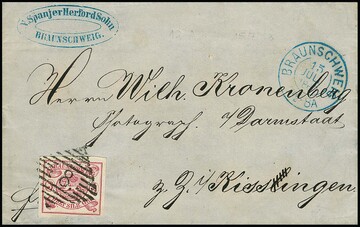 V. Spanjer Herford Sohn
BRAUNSCHWEIG.
BRAUNSCHWEIG
13
JUL
5A
Herrn Wilh. Kronenberg
Photograph. a/Darmstadt
z. Z. i/ Kissingen
8